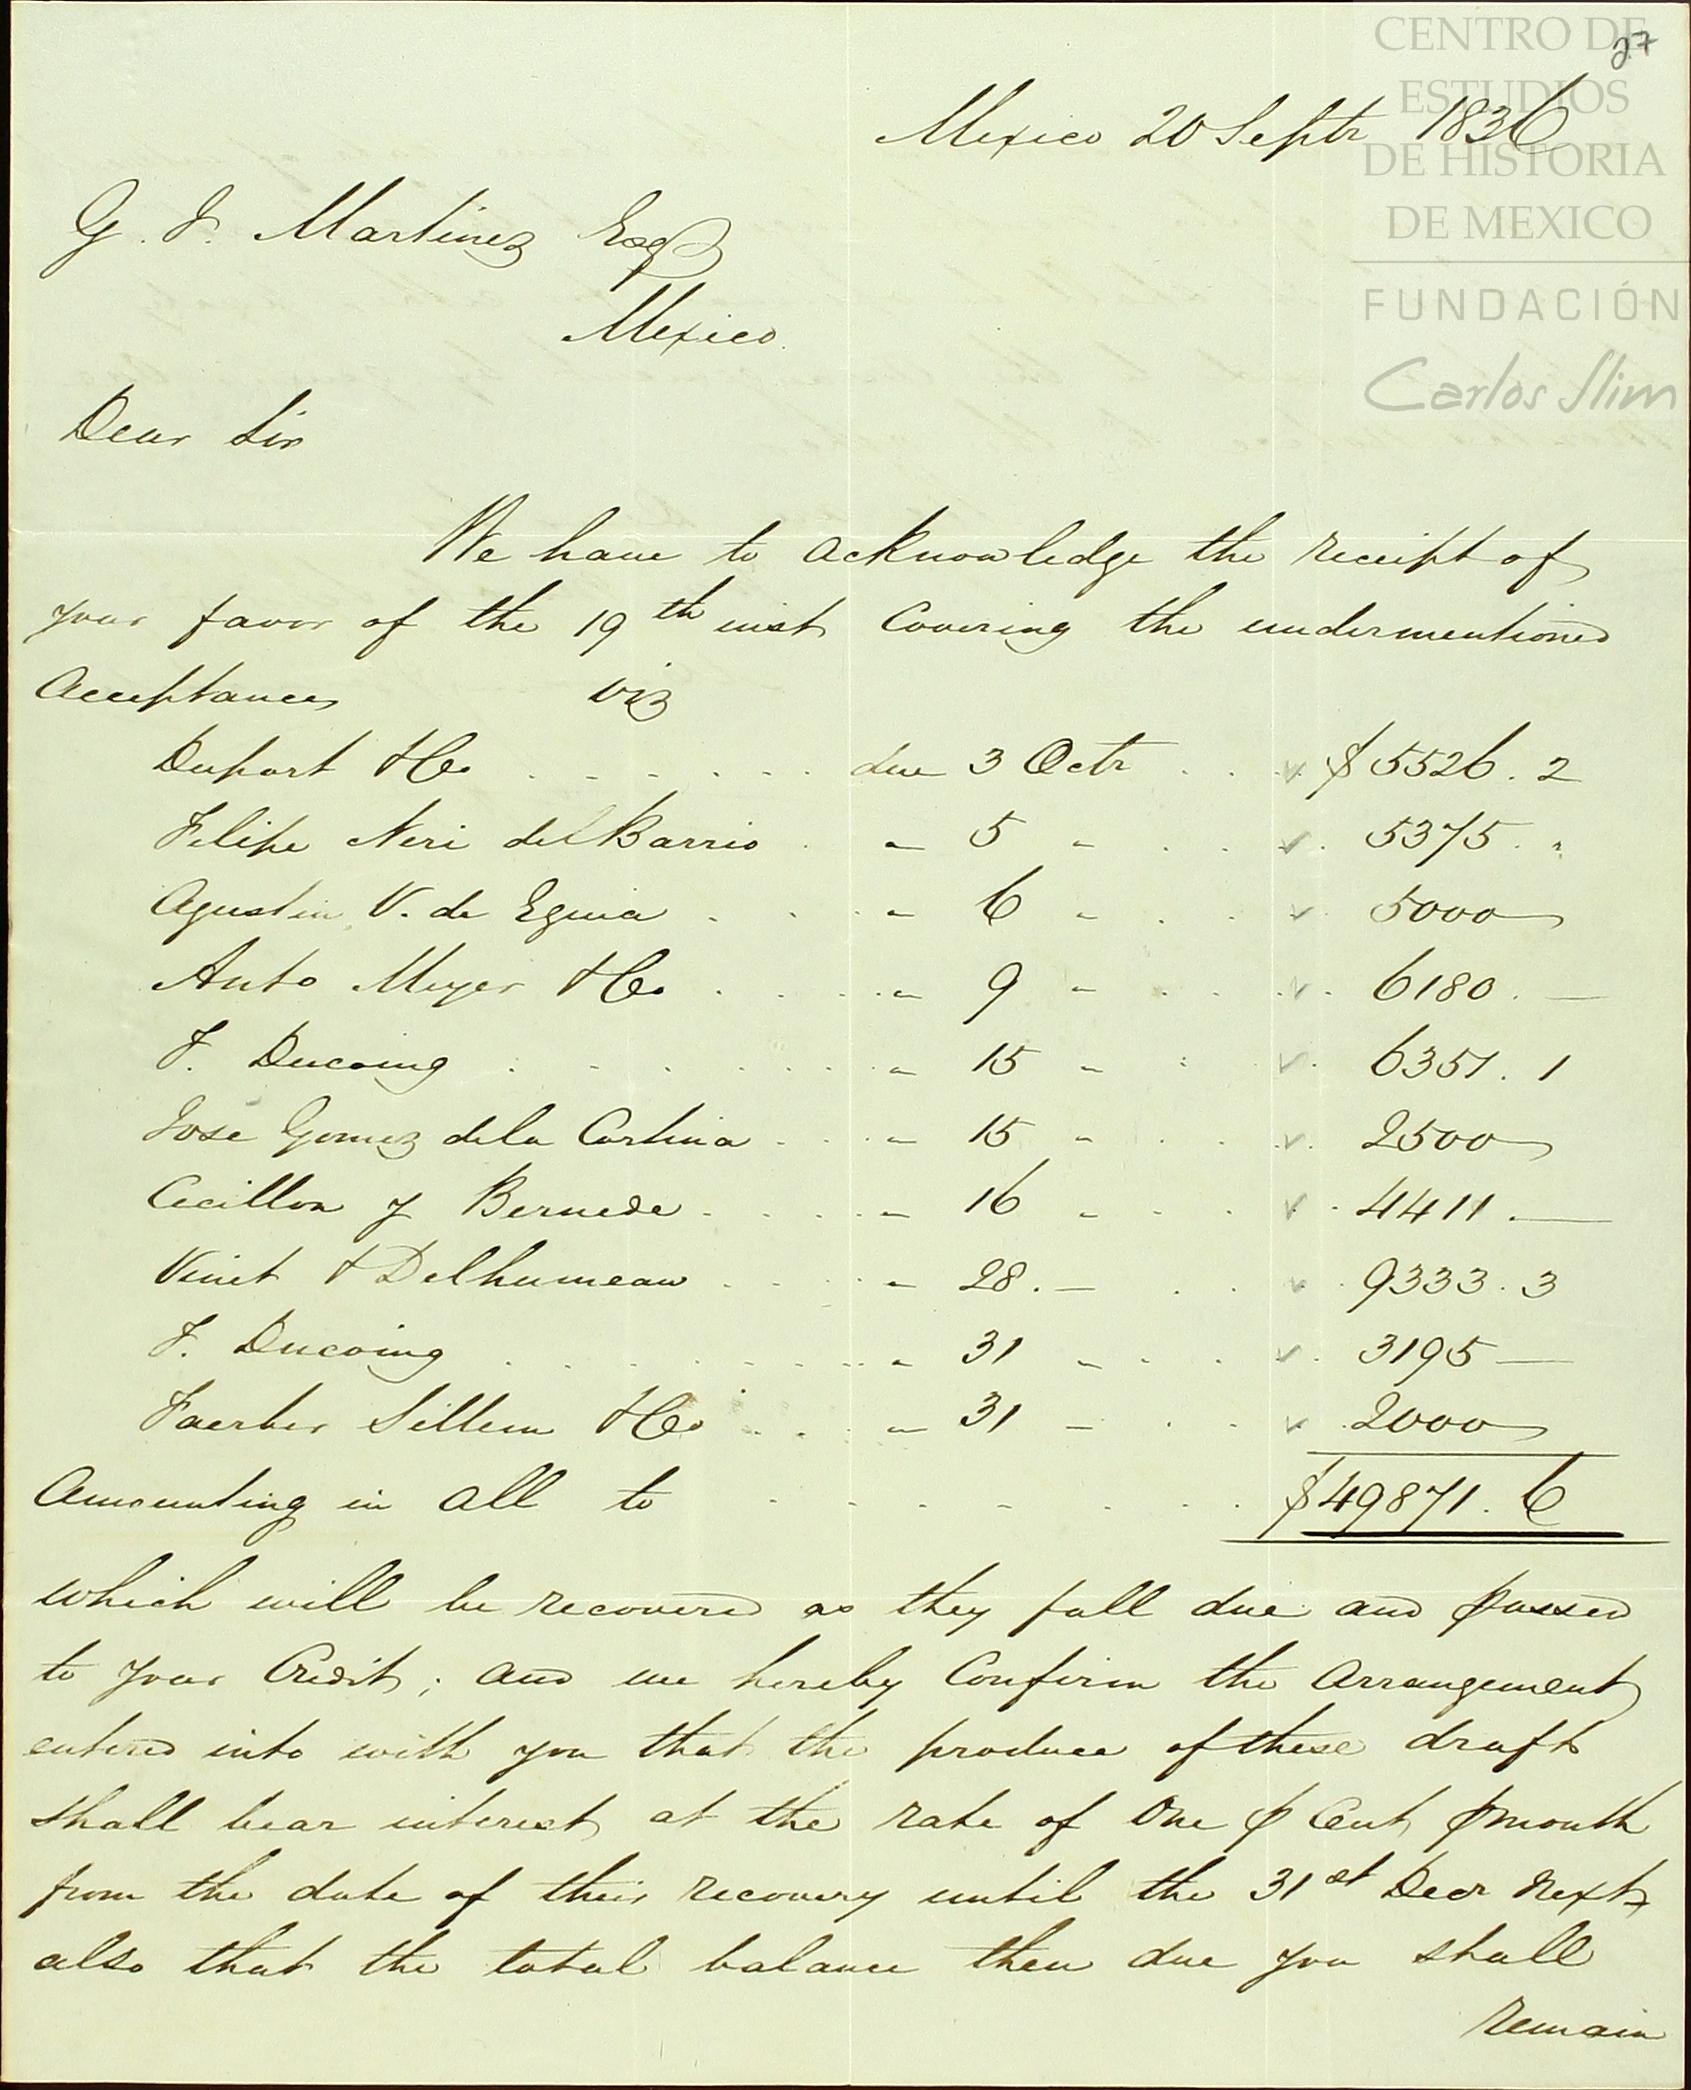 CENTRO DE
ESTUDIOS
DE HISTORIA
DE MEXICO
FUNDACIÓN
Carlos Slim
27
Mexico 20 Septr 1836
G. J. Martinez Esqr
Mexico.
Dear Sir
We have to acknowledge the receipt of
your favor of the 19th inst Covering the undermentioned
Acceptances viz
Duport & Co . . . . . . due 3 Octr . . . $ 5526. 2
Felipe Neri del Barrio . " 5 " . . . 5375. "
Agustin V. de Eguia . . . " 6 " . . . 5000
Anto Meyer & Co . . . . " 9 " . . . 6180. —
F. Ducoing . . . . . . . " 15 " . . . 6351. 1
José Gomez de la Cortina . . . " 15 " . . . 2500
Cecillon y Bernede . . . . " 16 " . . . 4411. —
Vinit & Delhumeau . . . . " 28. — . . . 9333. 3
F. Ducoing . . . . . . . " 31 " . . . 3195 —
Faerber Sillem & Co . . . " 31 — . . . 2000
Amounting in all to . . . . . . . $49871. 6
which will be recovered as they fall due and passed
to your Credit; and we hereby Confirm the Arrangement
entered into with you that the produce of these drafts
shall bear interest at the rate of One ⅌ Cent ⅌ month
from the date of their recovery until the 31st Decr next
also that the total balance then due you shall
remain